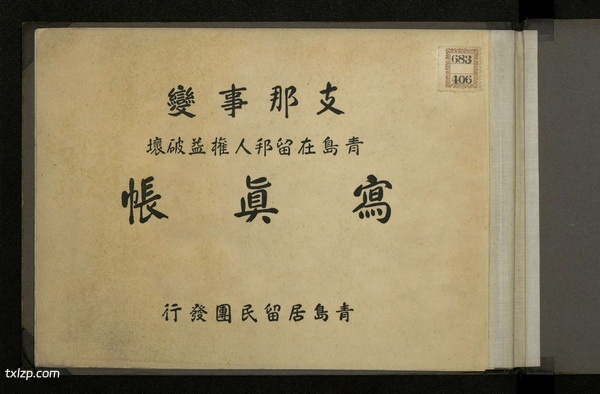 支那事變
青島在留邦人権益破壞
寫眞帳
青島居留民團發行
683
406
txlzp.com